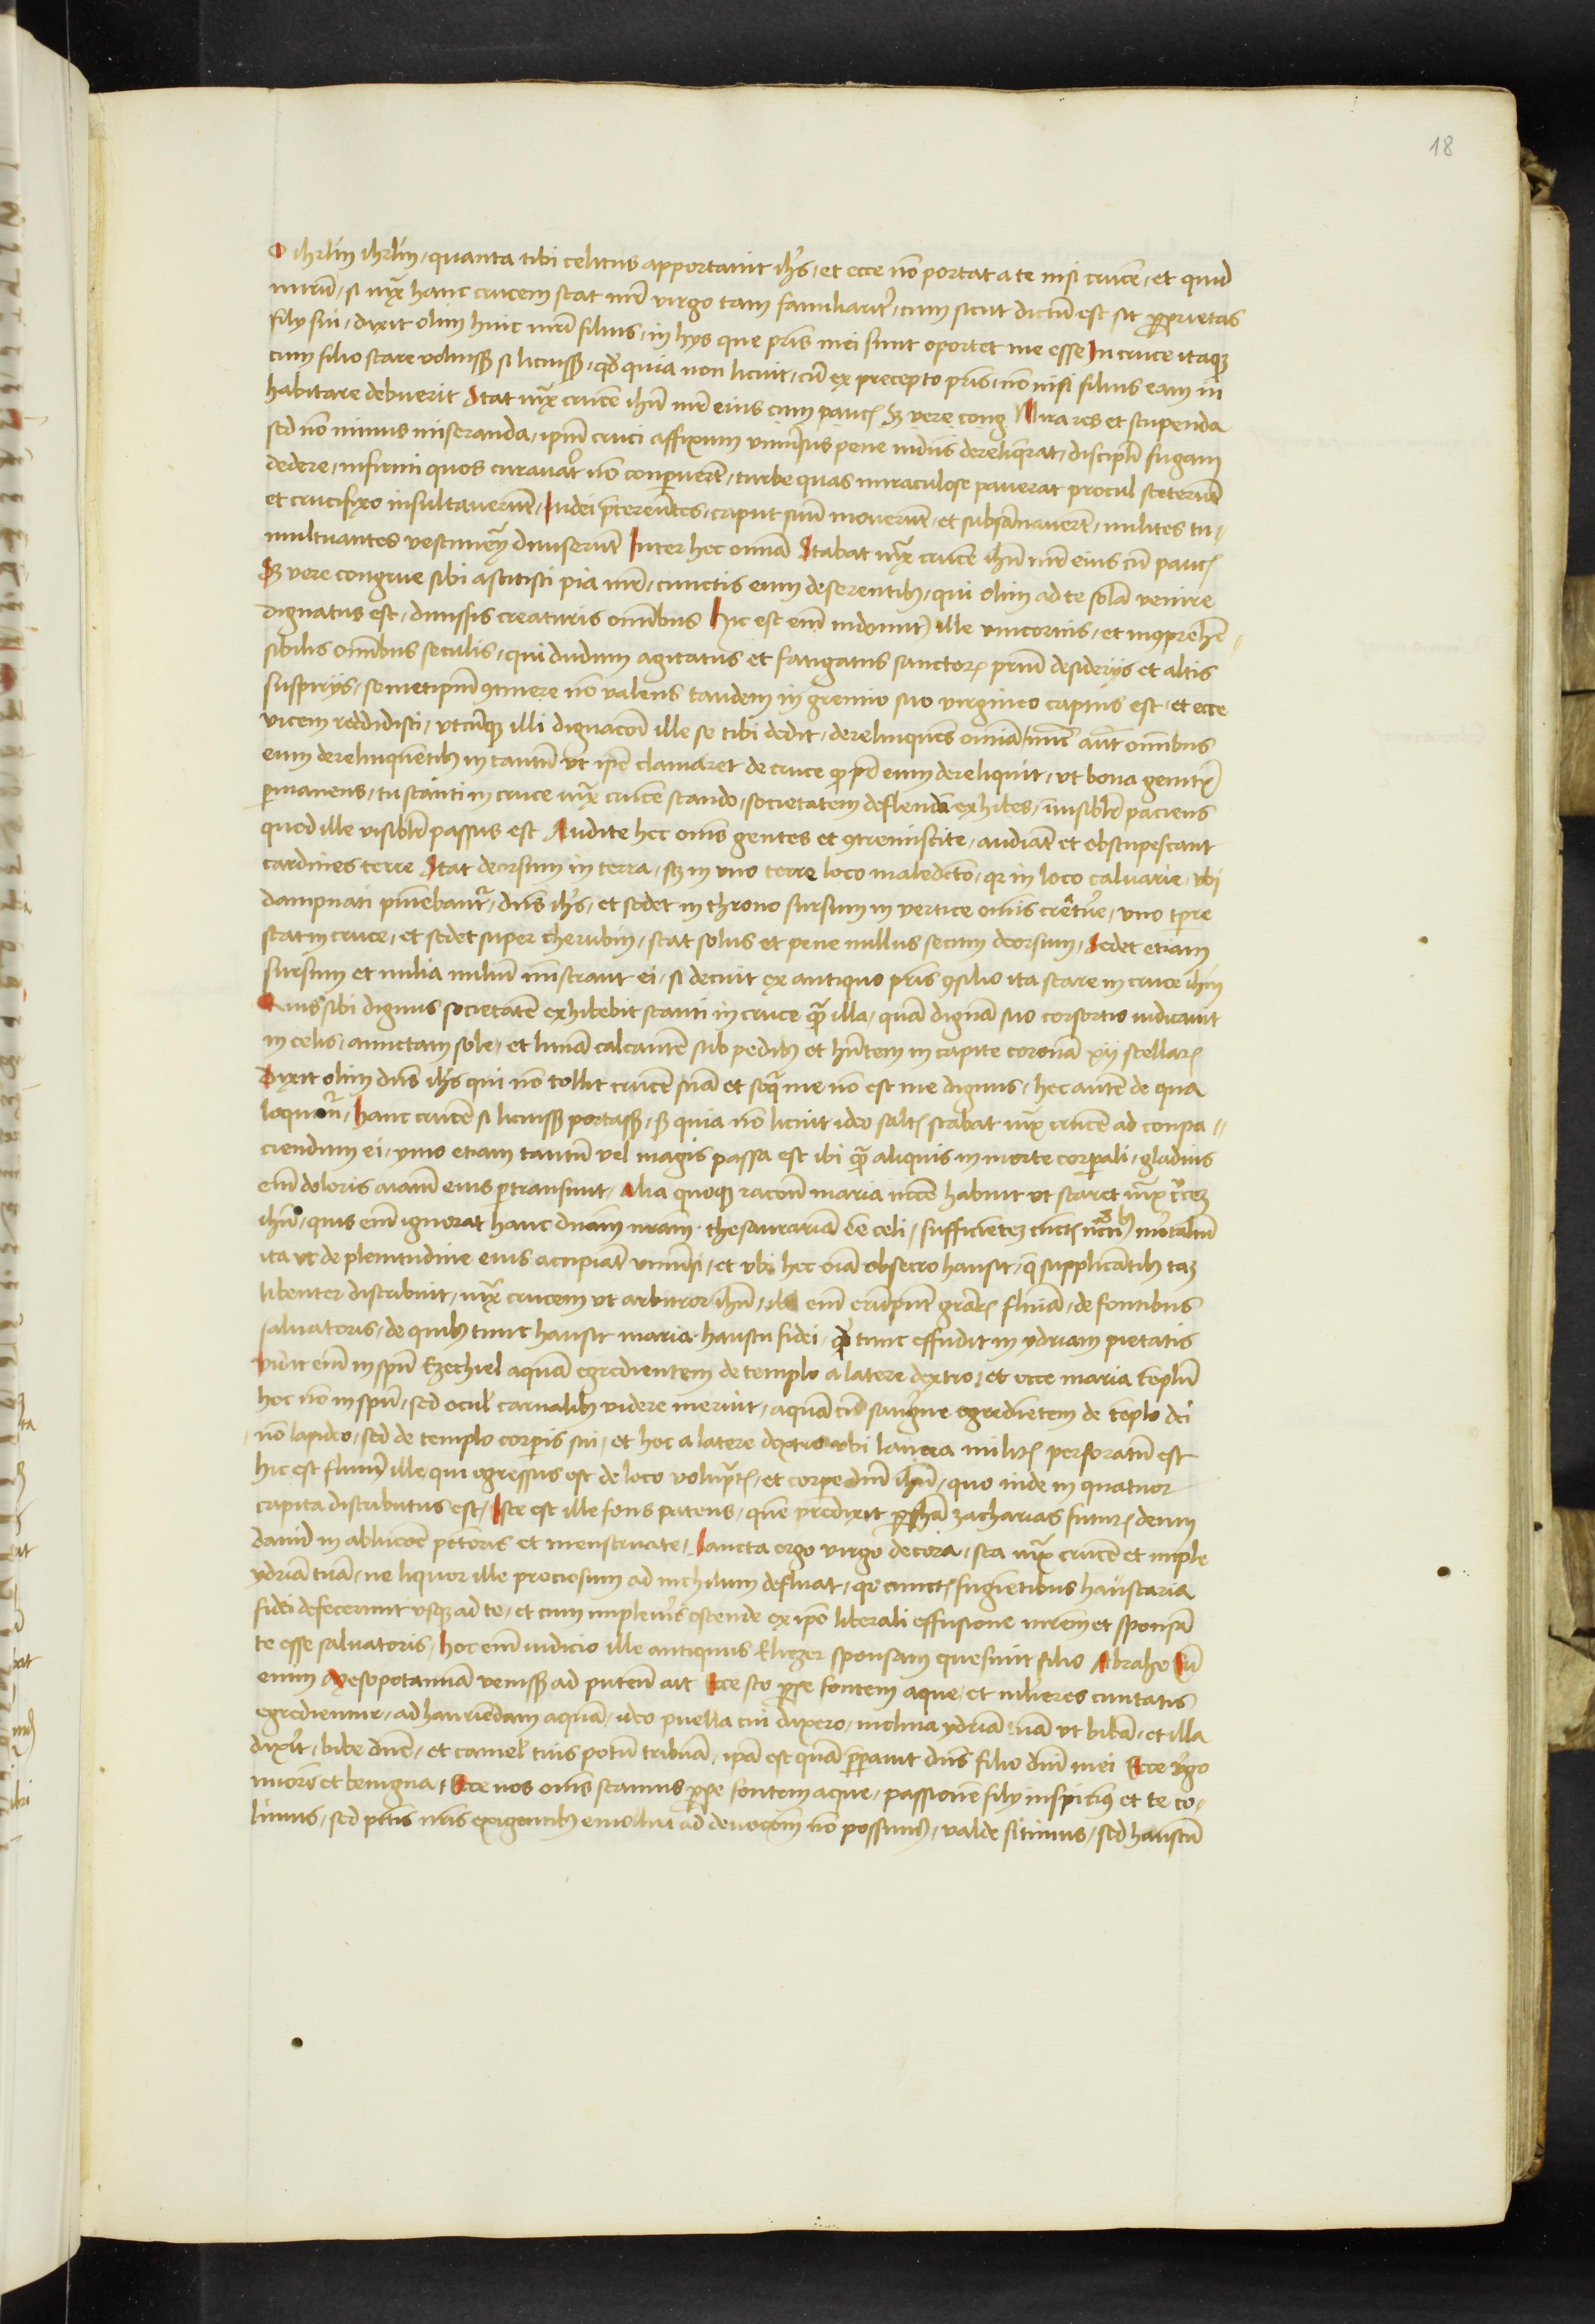 18
O ihrlm̄ ihrlm̄ / quanta tibi celitus apportauit ih̄s / et ecce nō portat a te nisi crucē / et quid
mirū / si iuxͣ hanc crucem stat mr̄ virgo tam familiarit᷑ / cum sicut dictū est sit ꝓprietas
filij sui / dixit olim huic mr̄i filius / in hijs que pr̄is mei sunt oportet me esse In cruce itaqꝫ
cum filio stare voluissꝫ si licuissꝫ / qd̄ quia non licuit / cū ex precepto pr̄is / non nisi filius eam in
habitare debuerit Stat iuxͣ crucē ihū mr̄ eius cum paucꝭ Sꝫ vere cong Mira res et stupenda
sed nō minus miseranda / ipm̄ cruci affixum vniu᷑sus pene mūdus dereliq̄rat / discipl̄i fugam
dedere / infirmi quos curauat᷑ nō conparuer̄t / turbe quas miraculose pauerat procul steterūt
et crucifixo insultauerunt / Iudei p̄tereūtes / caput suū mouerūt / et subsānauer̄t / milites tu-
multuantes vestimētͣ diuiserūt Inter hec om̄ia Stabat iuxͣ crucē ihū mr̄ eius cū paucꝭ
Sꝫ vere congrue sibi astitisti pia mr̄ / cunctis eum deserentibꝫ / qui olim ad te solā venire
dignatus est / dimissis creaturis om̄ibus Hic est em̄ indomit᷒ ille vnicornis / et inꝯprehē-
sibilis om̄ibus seculis / qui dudum agitatus et fatigatus sanctorꝫ priū desiderijs et altis
suspirijs / semetipm̄ ꝯtinere nō valens tandem in gremio suo virgineo captus est / et ecce
vicem reddidisti / vtcūqꝫ illi dignacōi ille se tibi dedit / derelinquēs om̄ia / tunc aūt om̄ibus
eum derelinquētibꝫ in tantū vt ip̄e clamaret de cruce ꝙ pr̄ eum dereliquit / vt bona genitꝭ
ꝑmanens / tu stāti in cruce iuxͣ crucē stando / societatem deflendā exhibes / inuisibl̄r paciens
quod ille visibl̄r passus est Audite hec om̄s gentes et ꝯtremiscite / audiāt et obstupescant
cardines terre Stat deorsum in terra / sꝫ in vno terre loco maledicto / qꝛ in loco caluarie / vbi
dampnati puniebant᷑ / dn̄s ih̄s / et sedet in throno sursum in vertice om̄is creat᷑e / vno tp̄re
stat in cruce / et sedet super cherubin / stat solus et pene nullus secum deorsum / Sedet etiam
sursum et milia miliū mīstrant ei / si decuit ex antiquo pr̄is ꝯsilio ita stare in cruce ihm̄
Quis sibi dignius societatē exhibebit stanti in cruce qͣ illa / quā dignā suo consortio iudicauit
in celis / amictam sole / et lunā calcantē sub pedibꝫ et hn̄tem in capite coronā xij stellarꝫ
Dixit olim dn̄s ih̄s qui nō tollit crucē suā et seqͣ me nō est me dignus / hec autē de qua
loquor᷑ / hanc crucē si licuissꝫ portassꝫ / sꝫ quia nō licuit ideo saltꝭ stabat iuxͣ crucē ad conpa-
ciendum ei / ymo etiam tantū vel magis passa est ibi qͣ aliquis in morte corꝑali / gladius
em̄ doloris aīam eius ꝑtransiuit / Alia quoqꝫ racōne maria necē habuit vt staret iuxͣ crucē
ihū / quis em̄ ignorat hanc dn̄am nrām thesaurariā eē celi / sufficiētem cūctꝭ mortaliū
ita vt de plenitudine eius accipiāt vniu᷑si / et vbi hec oīa obsecro hausit / q̄ supplicātibꝫ tā
libenter distribuit / iuxͣ crucem vt arbitror ihū / ibi em̄ erūpūt gr̄arꝫ fluīa / de fontibus
saluatoris / de quibꝫ tunc hausit maria haustu fidei / qd̄ tunc effudit in ydriam pietatis
Vidit em̄ in spū Ezechiel aquā egredientem de templo a latere dextro / et ecce maria tēplū
hoc nō in spū / sed ocul̄ carnalibꝫ videre meruit / aquā cū sangͥne egredientem de tēplo dei
nō lapideo / sed de templo corꝑis sui / et hoc a latere dextro vbi lancea militꝭ perforatū est
hic est fluuiꝰ ille / qui egressus est de loco voluptꝭ / et corpe dn̄i ihū / quo inde in quatuor
capita distributus est / Iste est ille fons patens / quē predixit ꝓpha zacharias futurꝫ domui
dauid in ablucōē pctōris et menstruate / Sancta ergo virgo decora / sta iuxͣ crucē et imple
ydriā tuā / ne liquor ille preciosum ad nichilum defluat / qꝛ cunctꝭ fugiētibus haustaria
fidei defecerunt vsqꝫ ad te / et cum impleu᷑is ostende ex ip̄o liberali effusione mr̄em et sponsā
te esse saluatoris / hoc em̄ iudicio ille antiquus Eliezer sponsam quesiuit filio Abrahe Cū
enim Mesopotamiā venissꝫ ad puteū ait Ecce sto ꝓpe fontem aque / et mulieres ciuitatis
egrediēntur / ad hauriēdam aquā / ideo puella cui dixero / inclina ydriā tuā vt bibā / et illa
dixit᷑ / bibe dn̄e / et camel̄ tuis potū tribuā / ipā est quā p̄parauit dn̄s filio dn̄i mei Ecce v᷑go
et benigna / Ecce nos om̄s stamus ꝓpe fontem aque / passionē filij inspicimꝰ et te co-
limus / sed pctīs nr̄is exigentibꝫ emolliri ad deuocōnē nō possumꝰ / valde sitimus / sed haustū